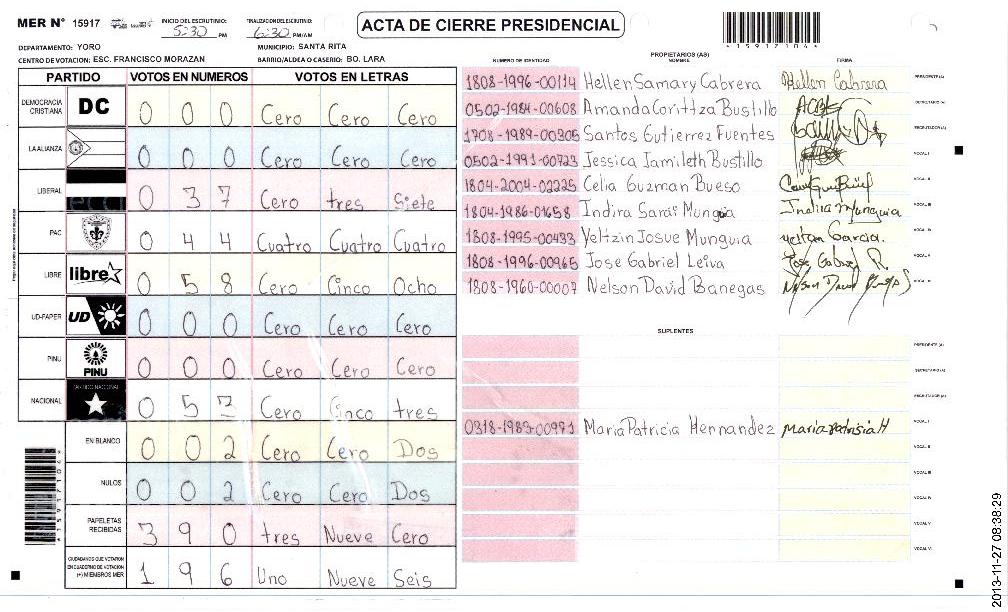 MER N° 15917 INICIO DEL ESCRUTINIO: 5:30 PM FINALIZACION DEL ESCRUTINIO: 6:30 PM/AM
ACTA DE CIERRE PRESIDENCIAL
*15917104*
DEPARTAMENTO: YORO MUNICIPIO: SANTA RITA
CENTRO DE VOTACION: ESC. FRANCISCO MORAZAN BARRIO/ALDEA O CASERIO: BO. LARA
PARTIDO VOTOS EN NUMEROS VOTOS EN LETRAS
DEMOCRACIA CRISTIANA DC 0 0 0 Cero Cero Cero
LA ALIANZA 0 0 0 Cero Cero Cero
LIBERAL 0 3 7 Cero tres Siete
PAC 0 4 4 Cuatro Cuatro Cuatro
LIBRE libre 0 5 8 Cero Cinco Ocho
UD-FAPER UD 0 0 0 Cero Cero Cero
PINU PINU 0 0 0 Cero Cero Cero
NACIONAL PARTIDO NACIONAL 0 5 3 Cero Cinco tres
EN BLANCO 0 0 2 Cero Cero Dos
NULOS 0 0 2 Cero Cero Dos
PAPELETAS RECIBIDAS 3 9 0 tres Nueve Cero
CIUDADANOS QUE VOTARON EN CUADERNO DE VOTACION (+) MIEMBROS MER 1 9 6 Uno Nueve Seis
PROPIETARIOS (AS)
NUMERO DE IDENTIDAD NOMBRE FIRMA
1808-1996-00114 Hellen Samary Cabrera Hellen Cabrera PRESIDENTE (A)
0502-1984-00608 Amanda Corittza Bustillo SECRETARIO (A)
1708-1989-00305 Santos Gutierrez Fuentes ESCRUTADOR (A)
0502-1991-00723 Jessica Jamileth Bustillo VOCAL I
1804-2004-02225 Celia Guzman Bueso VOCAL II
1804-1986-01658 Indira Sarai Munguia Indira Munguia VOCAL III
1808-1995-00433 Yeltzin Josue Munguia VOCAL IV
1808-1996-00965 Jose Gabriel Leiva Jose Gabriel R. VOCAL V
1808-1960-00007 Nelson David Banegas Nelson David VOCAL VI
SUPLENTES
PRESIDENTE (A)
SECRETARIO (A)
ESCRUTADOR (A)
0318-1983-00971 Maria Patricia Hernandez maria patrisia H VOCAL I
VOCAL II
VOCAL III
VOCAL IV
VOCAL V
VOCAL VI
2013-11-27 08:38:29